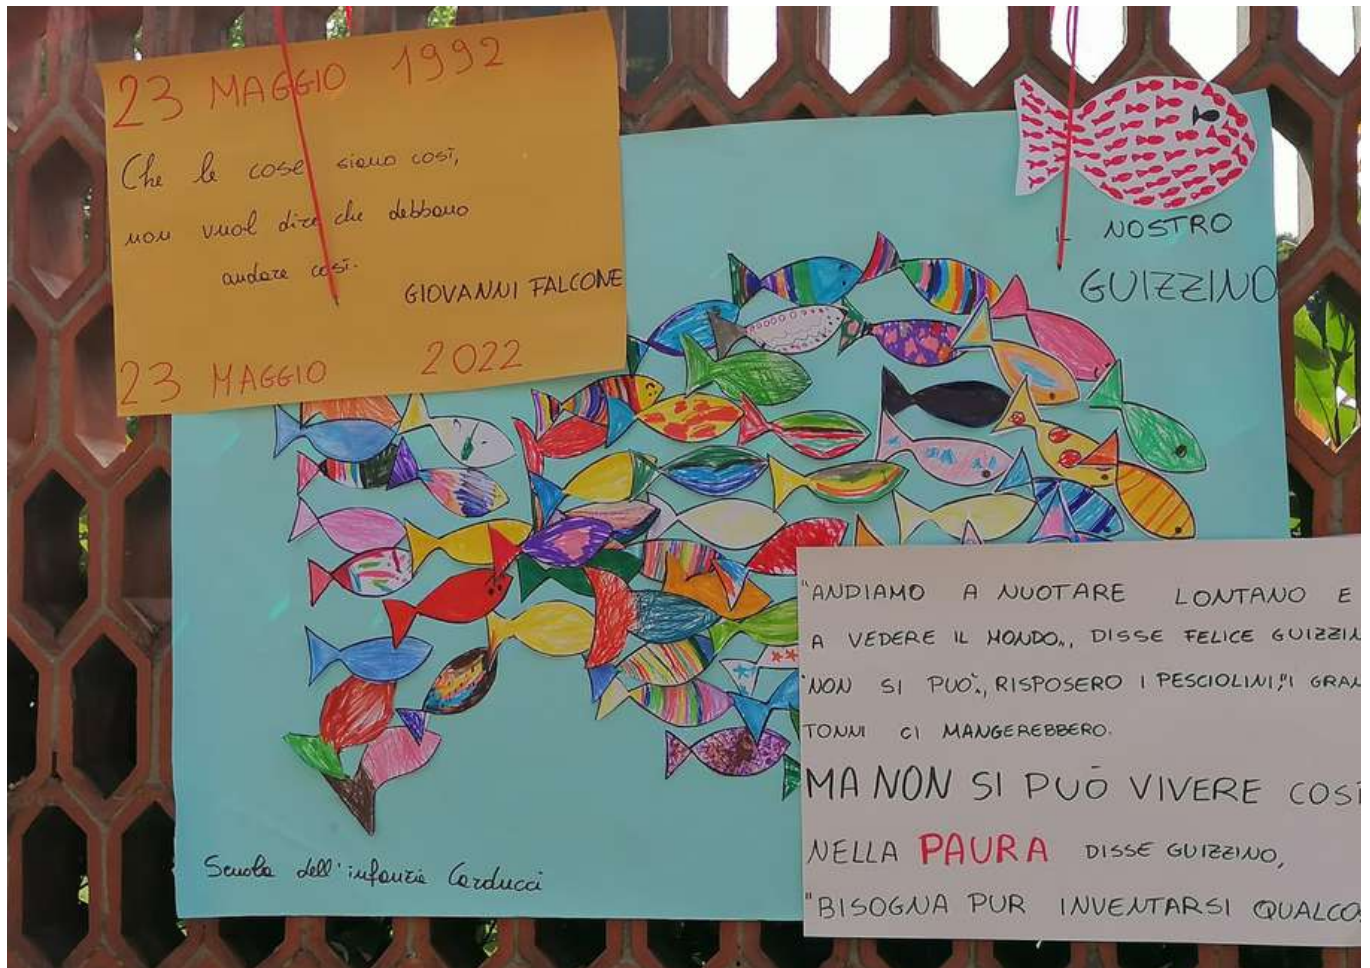 23 MAGGIO 1992
Che le cose siano così,
non vuol dire che debbano
andare così.
GIOVANNI FALCONE
23 MAGGIO 2022
IL NOSTRO
GUIZZINO
"ANDIAMO A NUOTARE LONTANO E
A VEDERE IL MONDO", DISSE FELICE GUIZZIN
"NON SI PUÒ", RISPOSERO I PESCIOLINI, "I GRAN
TONNI CI MANGEREBBERO.
MA NON SI PUÒ VIVERE COSÌ
NELLA PAURA DISSE GUIZZINO,
"BISOGNA PUR INVENTARSI QUALCO
Scuola dell'infanzia Carducci